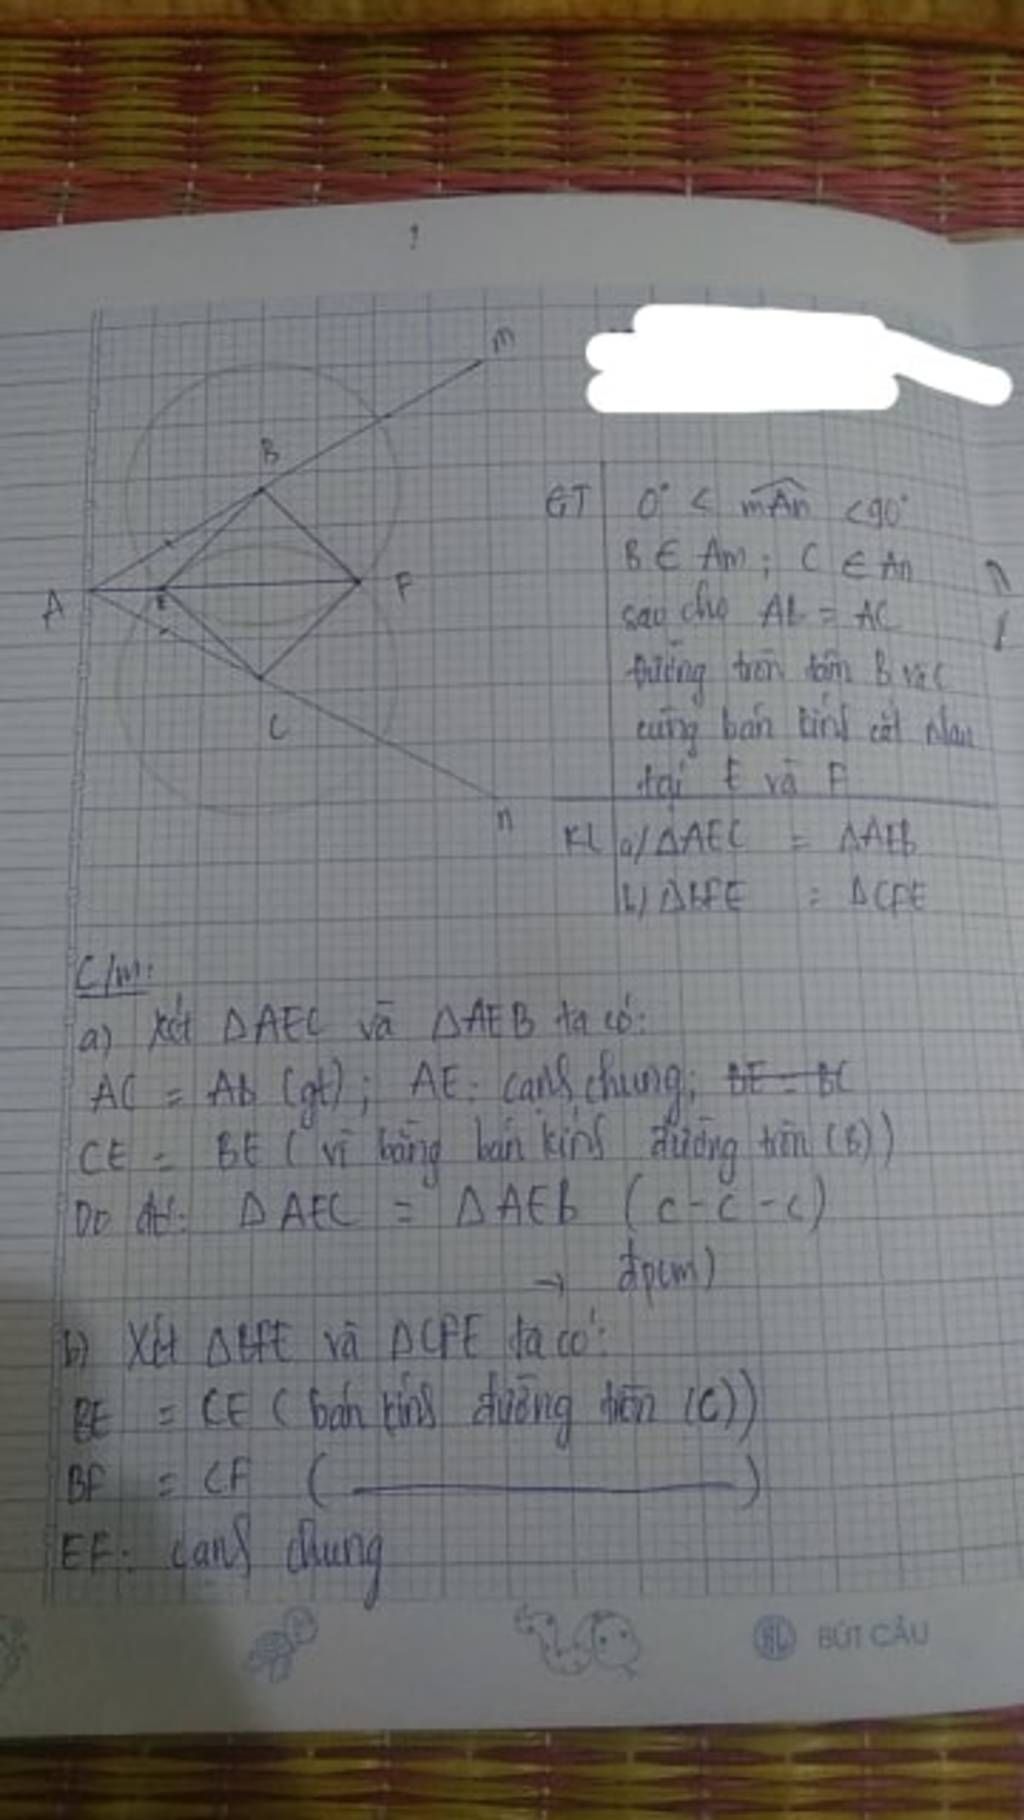 m
B
A
E
F
C
n
GT 0° < mAn < 90°
B ∈ Am; C ∈ An
sao cho AB = AC
Đường tròn tâm B và C
cùng bán kính cắt nhau
tại E và F
KL a/ ΔAEC = ΔAEB
b/ ΔBFE = ΔCFE
C/m:
a) Xét ΔAEC và ΔAEB ta có:
AC = AB (gt); AE: cạnh chung; BE = BC
CE = BE (vì bằng bán kính đường tròn (B))
Do đó: ΔAEC = ΔAEB (c-c-c)
→ đpcm)
b) Xét ΔBFE và ΔCFE ta có:
BE = CE (bán kính đường tròn (C))
BF = CF ( )
EF: cạnh chung
BÚT CÂU